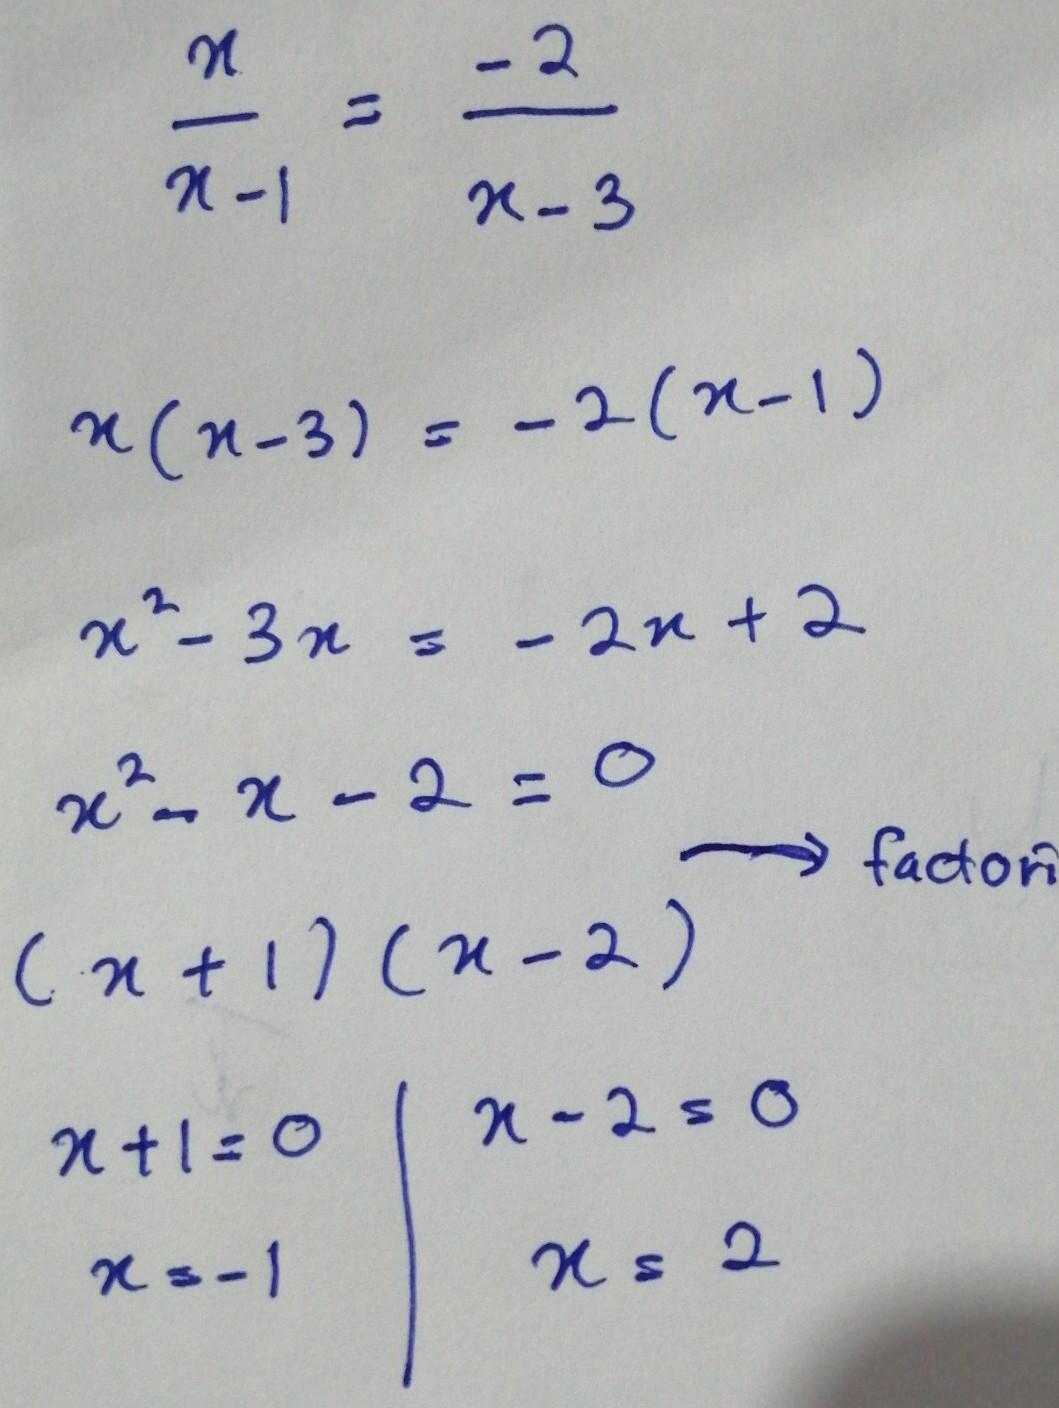 x/(x-1) = -2/(x-3)
x(x-3) = -2(x-1)
x² - 3x = -2x + 2
x² - x - 2 = 0
→ factori
(x+1)(x-2)
x+1=0 | x-2=0
x=-1 | x=2